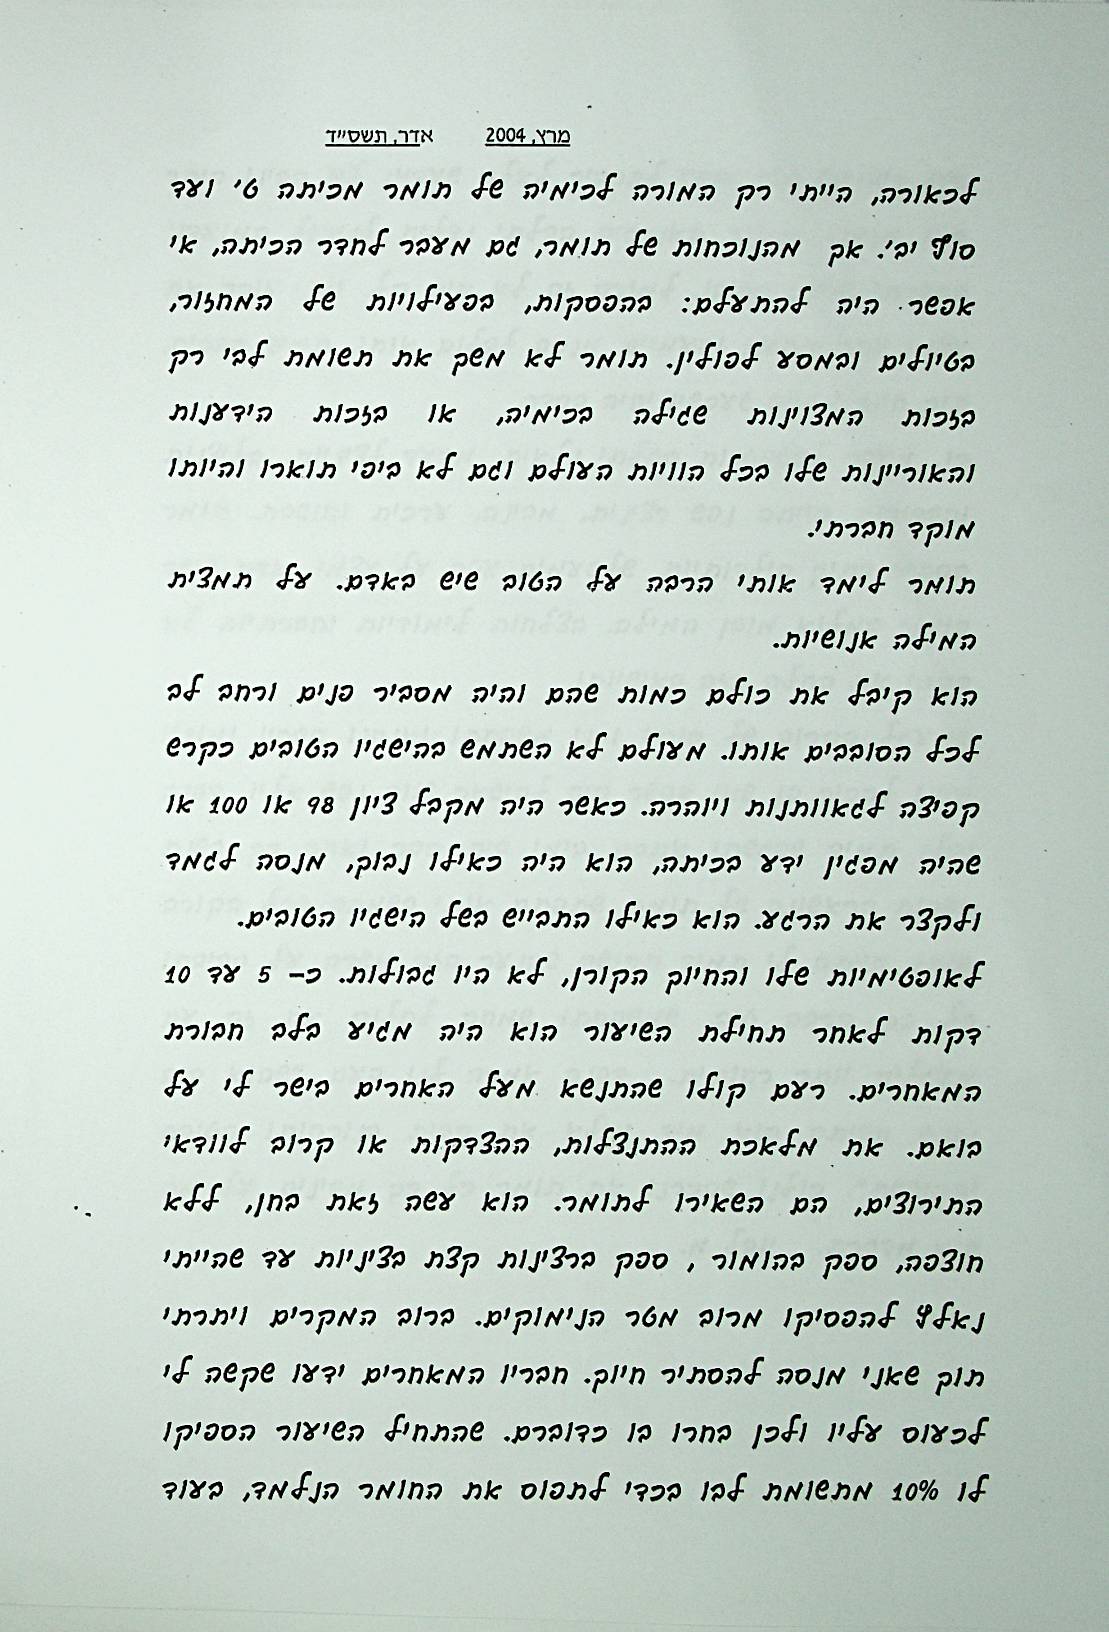 מרץ, 2004 אדר, תשס״ד
לכאורה, הייתי רק המורה לכימיה של תומר מכיתה ט' ועד
סוף יב'. אך מהנוכחות של תומר, גם מעבר לחדר הכיתה, אי
אפשר היה להתעלם: בהפסקות, בפעילויות של המחזור,
בטיולים ובמסע לפולין. תומר לא משך את תשומת לבי רק
בזכות המצוינות שגילה בכימיה, או בזכות הידענות
והאוריינות שלו בכל הוויות העולם וגם לא ביפי תוארו והיותו
מוקד חברתי.
תומר לימד אותי הרבה על הטוב שיש באדם. על תמצית
המילה אנושיות.
הוא קיבל את כולם כמות שהם והיה מסביר פנים ורחב לב
לכל הסובבים אותו. מעולם לא השתמש בהישגיו הטובים כקרש
קפיצה לגאוותנות ויוהרה. כאשר היה מקבל ציון 98 או 100 או
שהיה מפגין ידע בכיתה, הוא היה כאילו נבוך, מנסה לגמד
ולקצר את הרגע. הוא כאילו התבייש בשל הישגיו הטובים.
לאופטימיות שלו והחיוך הקורן, לא היו גבולות. כ- 5 עד 10
דקות לאחר תחילת השיעור הוא היה מגיע בלב חבורת
המאחרים. רעם קולו שהתנשא מעל האחרים בישר לי על
בואם. את מלאכת ההתנצלות, ההצדקות או קרוב לוודאי
התירוצים, הם השאירו לתומר. הוא עשה זאת בחן, ללא
חוצפה, ספק בהומור , ספק ברצינות קצת בציניות עד שהייתי
נאלץ להפסיקו מרוב מטר הנימוקים. ברוב המקרים ויתרתי
תוך שאני מנסה להסתיר חיוך. חבריו המאחרים ידעו שקשה לי
לכעוס עליו ולכן בחרו בו כדוברם. שהתחיל השיעור הספיקו
לו 10% מתשומת לבו בכדי לתפוס את החומר הנלמד, בעוד